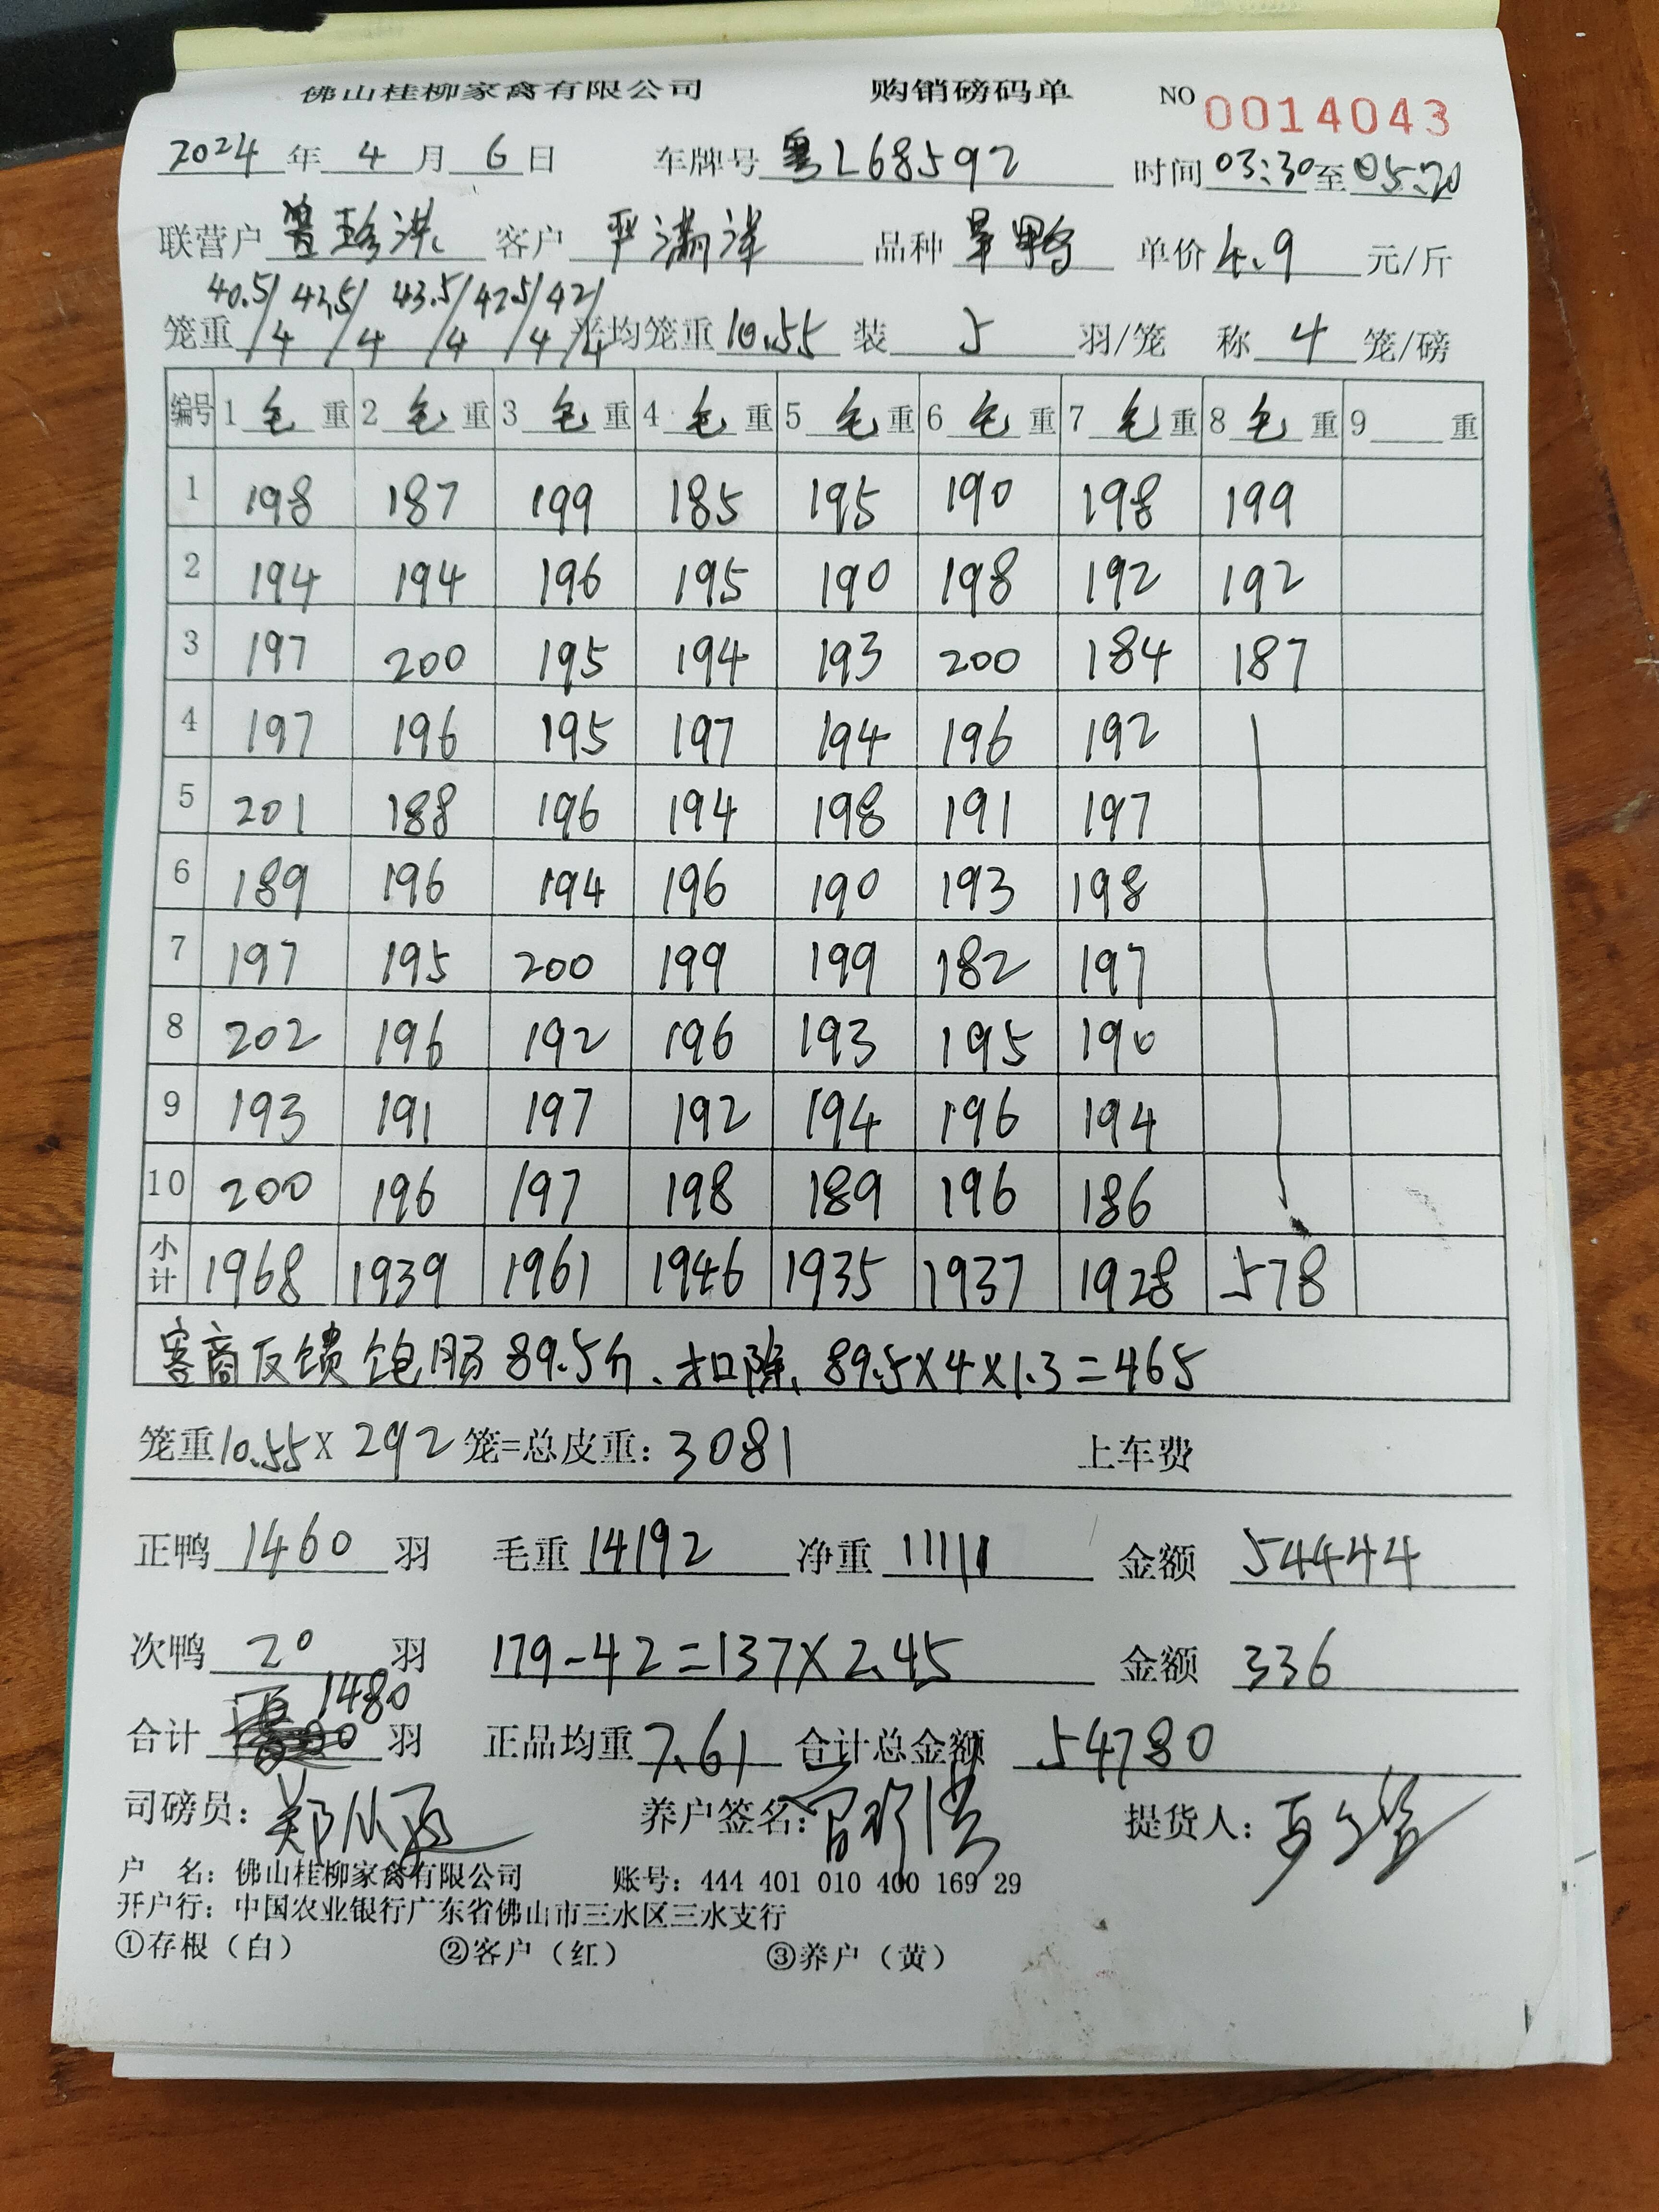 佛山桂柳家禽有限公司 购销磅码单 NO 0014043
2024 年 4 月 6 日 车牌号 粤L68592 时间 03:30 至 05:20
联营户 曾珍洪 客户 严满洋 品种 旱鸭 单价 4.9 元/斤
笼重 40.5/4 42.5/4 43.5/4 42.5/4 42/4 平均笼重 10.55 装 5 羽/笼 称 4 笼/磅
编号 1 毛 重 2 毛 重 3 毛 重 4 毛 重 5 毛 重 6 毛 重 7 毛 重 8 毛 重 9 重
1 198 187 199 185 195 190 198 199
2 194 194 196 195 190 198 192 192
3 197 200 195 194 193 200 184 187
4 197 196 195 197 194 196 192
5 201 188 196 194 198 191 197
6 189 196 194 196 190 193 198
7 197 195 200 199 199 182 197
8 202 196 192 196 193 195 190
9 193 191 197 192 194 196 194
10 200 196 197 198 189 196 186
小计 1968 1939 1961 1946 1935 1937 1928 578
客商反馈饱肠89.5斤、扣除、89.5×4×1.3=465
笼重 10.55 X 292 笼=总皮重: 3081 上车费
正鸭 1460 羽 毛重 14192 净重 11111 金额 54444
次鸭 20 羽 179-42=137×2.45 金额 336
合计 1480 羽 正品均重 7.61 合计总金额 54780
司磅员: 养户签名: 提货人:
户 名: 佛山桂柳家禽有限公司 账号: 444 401 010 400 169 29
开户行: 中国农业银行广东省佛山市三水区三水支行
①存根（白） ②客户（红） ③养户（黄）